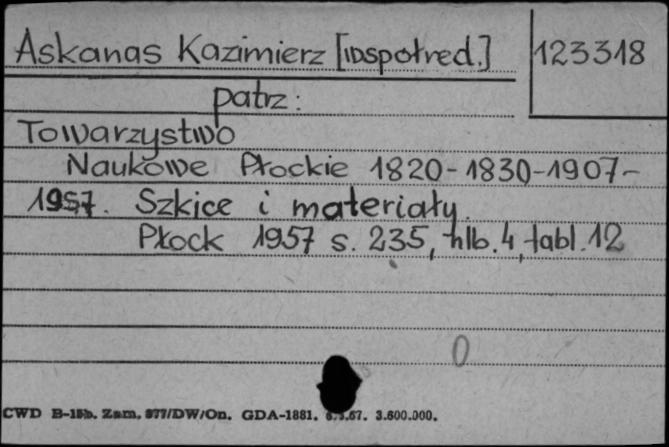 Askanas Kazimierz [współred.] 123318
patrz:
Towarzystwo
Naukowe Płockie 1820-1830-1907-
1957. Szkice i materiały.
Płock 1957 s. 235, nlb. 4, tabl. 12
0
CWD B-15b. Zam. 877/DW/On. GDA-1881. 67. 3.600.000.